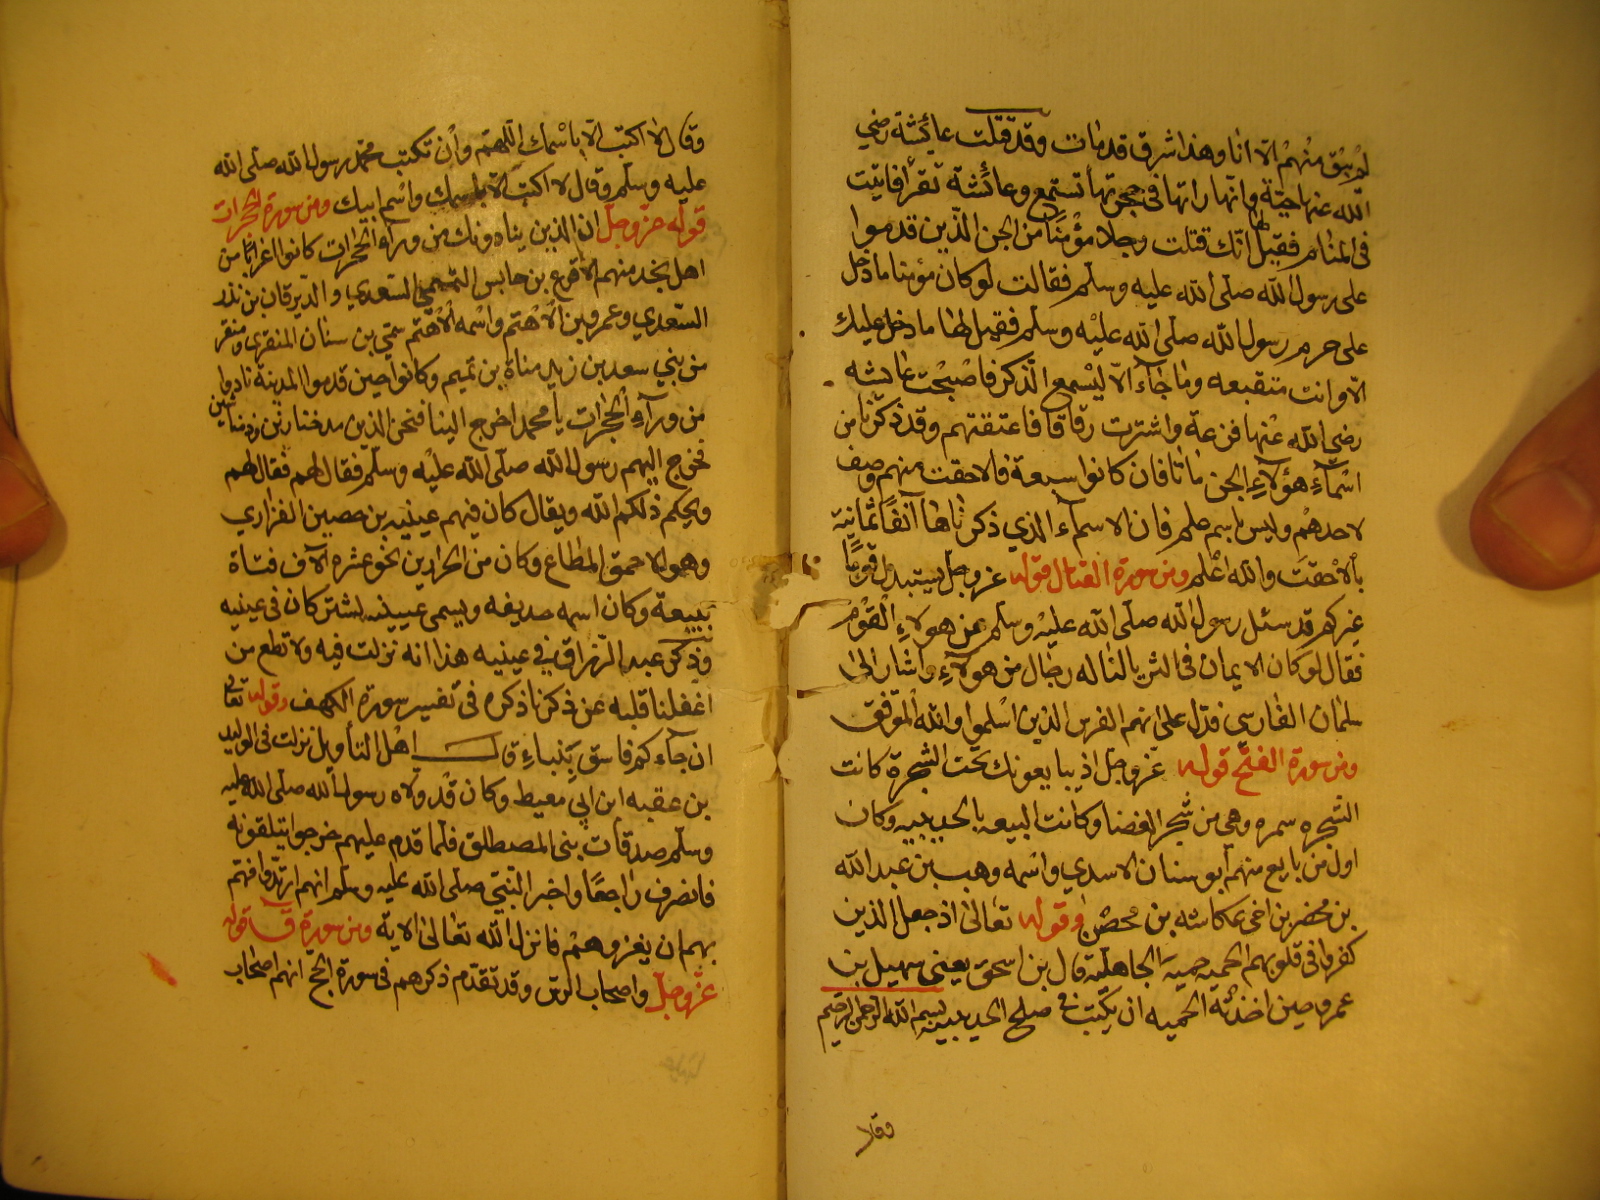 لم يبق منهم الا انا وهذا سرق قد مات وقد قتلت عائشة رضي
الله عنها جنية وانها راتها في حجرتها تستمع وعائشة تقرأ فاتيت
في المنام فقيل لها انك قتلت رجلا مؤمنا من الجن الذين قدموا
على رسول الله صلى الله عليه وسلم فقالت لو كان مؤمنا ما دخل
على حرم رسول الله صلى الله عليه وسلم فقيل لها ما دخل عليك
الا وانت متقبعه وما جاء الا ليسمع الذكر فاصبحت عائشه
رضي الله عنها فزعة واشترت رقاقا فاعتقتهم وقد ذكرنا من
اسماء هؤلاء الجن ما تا فان كانوا سبعة فالاحقت منهم وصف
لاحدهم وليس باسم علم فان الاسماء الذي ذكرناها آنفا ثمانية
بالاحقت والله اعلم ومن سورة القتال قوله عز وجل يستبدل قوما
غيركم قد سئل رسول الله صلى الله عليه وسلم عن هولاء القوم
فقال لو كان الايمان في الثريا لناله رجال من هولاء واشار الى
سلمان الفارسي فدل على انهم الفرس الذين اسلموا والله الموفق
ومن سورة الفتح قوله عز وجل اذ يبايعونك تحت الشجرة كانت
الشجره سمره وهي من شجر الغضا وكانت البيعه بالحديبيه وكان
اول من بايع منهم ابو سنان الاسدي واسمه وهب بن عبد الله
بن محصن بن اخي عكاشه بن محصن وقوله تعالى اذ جعل الذين
كفروا في قلوبهم الحميه حمية الجاهلية قال بن اسحق يعنى سهيل بن
عمرو حين اخذته الحميه ان يكتب في صلح الحديبيه بسم الله الرحمن الرحيم
فقلا
وقال لا اكتب الا باسمك اللهم وان تكتب محمد رسول الله صلى الله
عليه وسلم وقال لا اكتب الا باسمك واسم ابيك ومن سورة الحجرات
قوله عز وجل ان الذين ينادونك من وراء الحجرات كانوا اعرابا من
اهل نجد منهم الاقرع بن حابس التميمي السعدي والزبرقان بن بدر
السعدي وعمرو بن الاهتم واسمه الاهتم سمي بن سنان المنقرى ومنقر
من بني سعد بن زيد مناة بن تميم وكانوا حين قدموا المدينة نادوا
من وراء الحجرات يا محمد اخرج الينا فنحن الذين مدحنا زين وذمنا شين
فخرج اليهم رسول الله صلى الله عليه وسلم فقال لهم فقال لهم
ويحكم ذلكم الله ويقال كان فيهم عيينه بن حصين الفزاري
وهو الاحمق المطاع وكان من الجرارين نحو عشره آلاف فتاة
تبيعة وكان اسمه حديفه ويسمى عيينه لشتر كان في عينيه
وذكر عبد الرزاق في عينيه هذا انه نزلت فيه ولا تطع من
اغفلنا قلبه عن ذكرنا ذكره في تفسير سورة الكهف وقوله تعالى
ان جاءكم فاسق بنباء قال اهل التأويل نزلت في الوليد
بن عقبه ابن ابي معيط وكان قد ولاه رسول الله صلى الله عليه
وسلم صدقات بني المصطلق فلما قدم عليهم خرجوا يتلقونه
فانصرف راجعا واخبر النبي صلى الله عليه وسلم انهم ارتدوا فهم
بهم ان يغزوهم فانزل الله تعالى الاية ومن سورة ق قوله
عز وجل واصحاب الرس وقد تقدم ذكرهم في سورة الحج انهم اصحاب